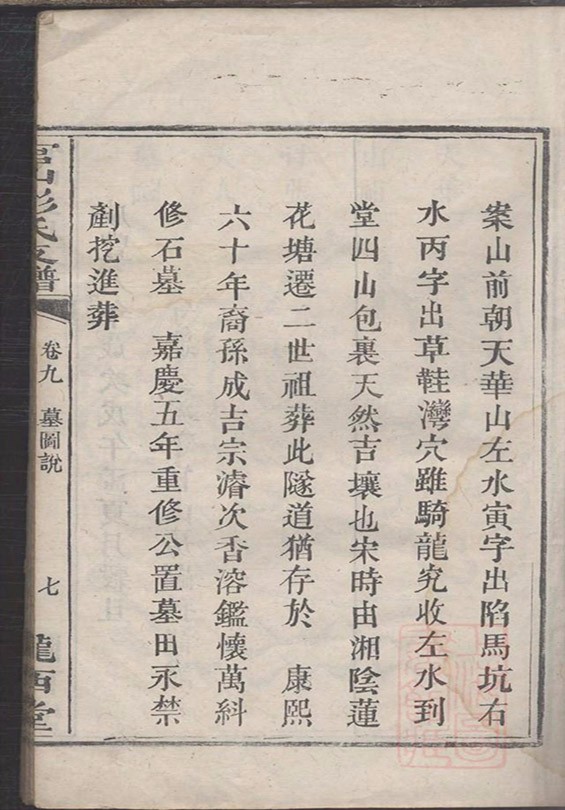 案山前朝天華山左水寅字出陷馬坑右
水丙字出草鞋灣穴雖騎龍究收左水到
堂四山包裹天然吉壤也宋時由湘陰蓮
花塘遷二世祖葬此隧道猶存於　康熙
六十年裔孫成吉宗濬次香溶鑑懷萬糾
修石墓　嘉慶五年重修公置墓田永禁
剷挖進葬
山彭氏支譜
卷九　墓圖說
七
隴西堂